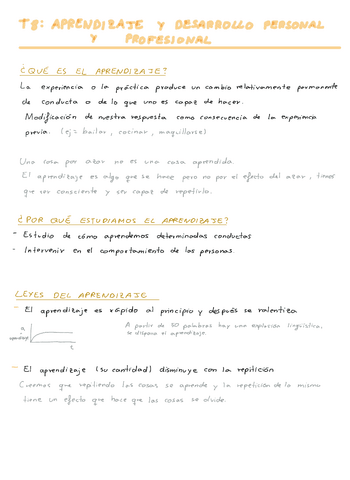 T8: APRENDIZAJE Y DESARROLLO PERSONAL
Y PROFESIONAL
¿QUÉ ES EL APRENDIZAJE?
La experiencia o la práctica produce un cambio relativamente permanente
de conducta o de lo que uno es capaz de hacer.
Modificación de nuestra respuesta como consecuencia de la experiencia
previa. (ej: bailar, cocinar, maquillarse)
Una cosa por azar no es una cosa aprendida.
El aprendizaje es algo que se hace pero no por el efecto del azar, tienes
que ser consciente y ser capaz de repetirlo.
¿POR QUÉ ESTUDIAMOS EL APRENDIZAJE?
- Estudio de cómo aprendemos determinadas conductas
- Intervenir en el comportamiento de las personas.
LEYES DEL APRENDIZAJE
- El aprendizaje es rápido al principio y después se ralentiza
A partir de 50 palabras hay una explosión lingüística,
se dispara el aprendizaje.
t
- El aprendizaje (su cantidad) disminuye con la repitición
Creemos que repitiendo las cosas se aprende y la repetición de lo mismo
tiene un efecto que hace que las cosas se olvide.